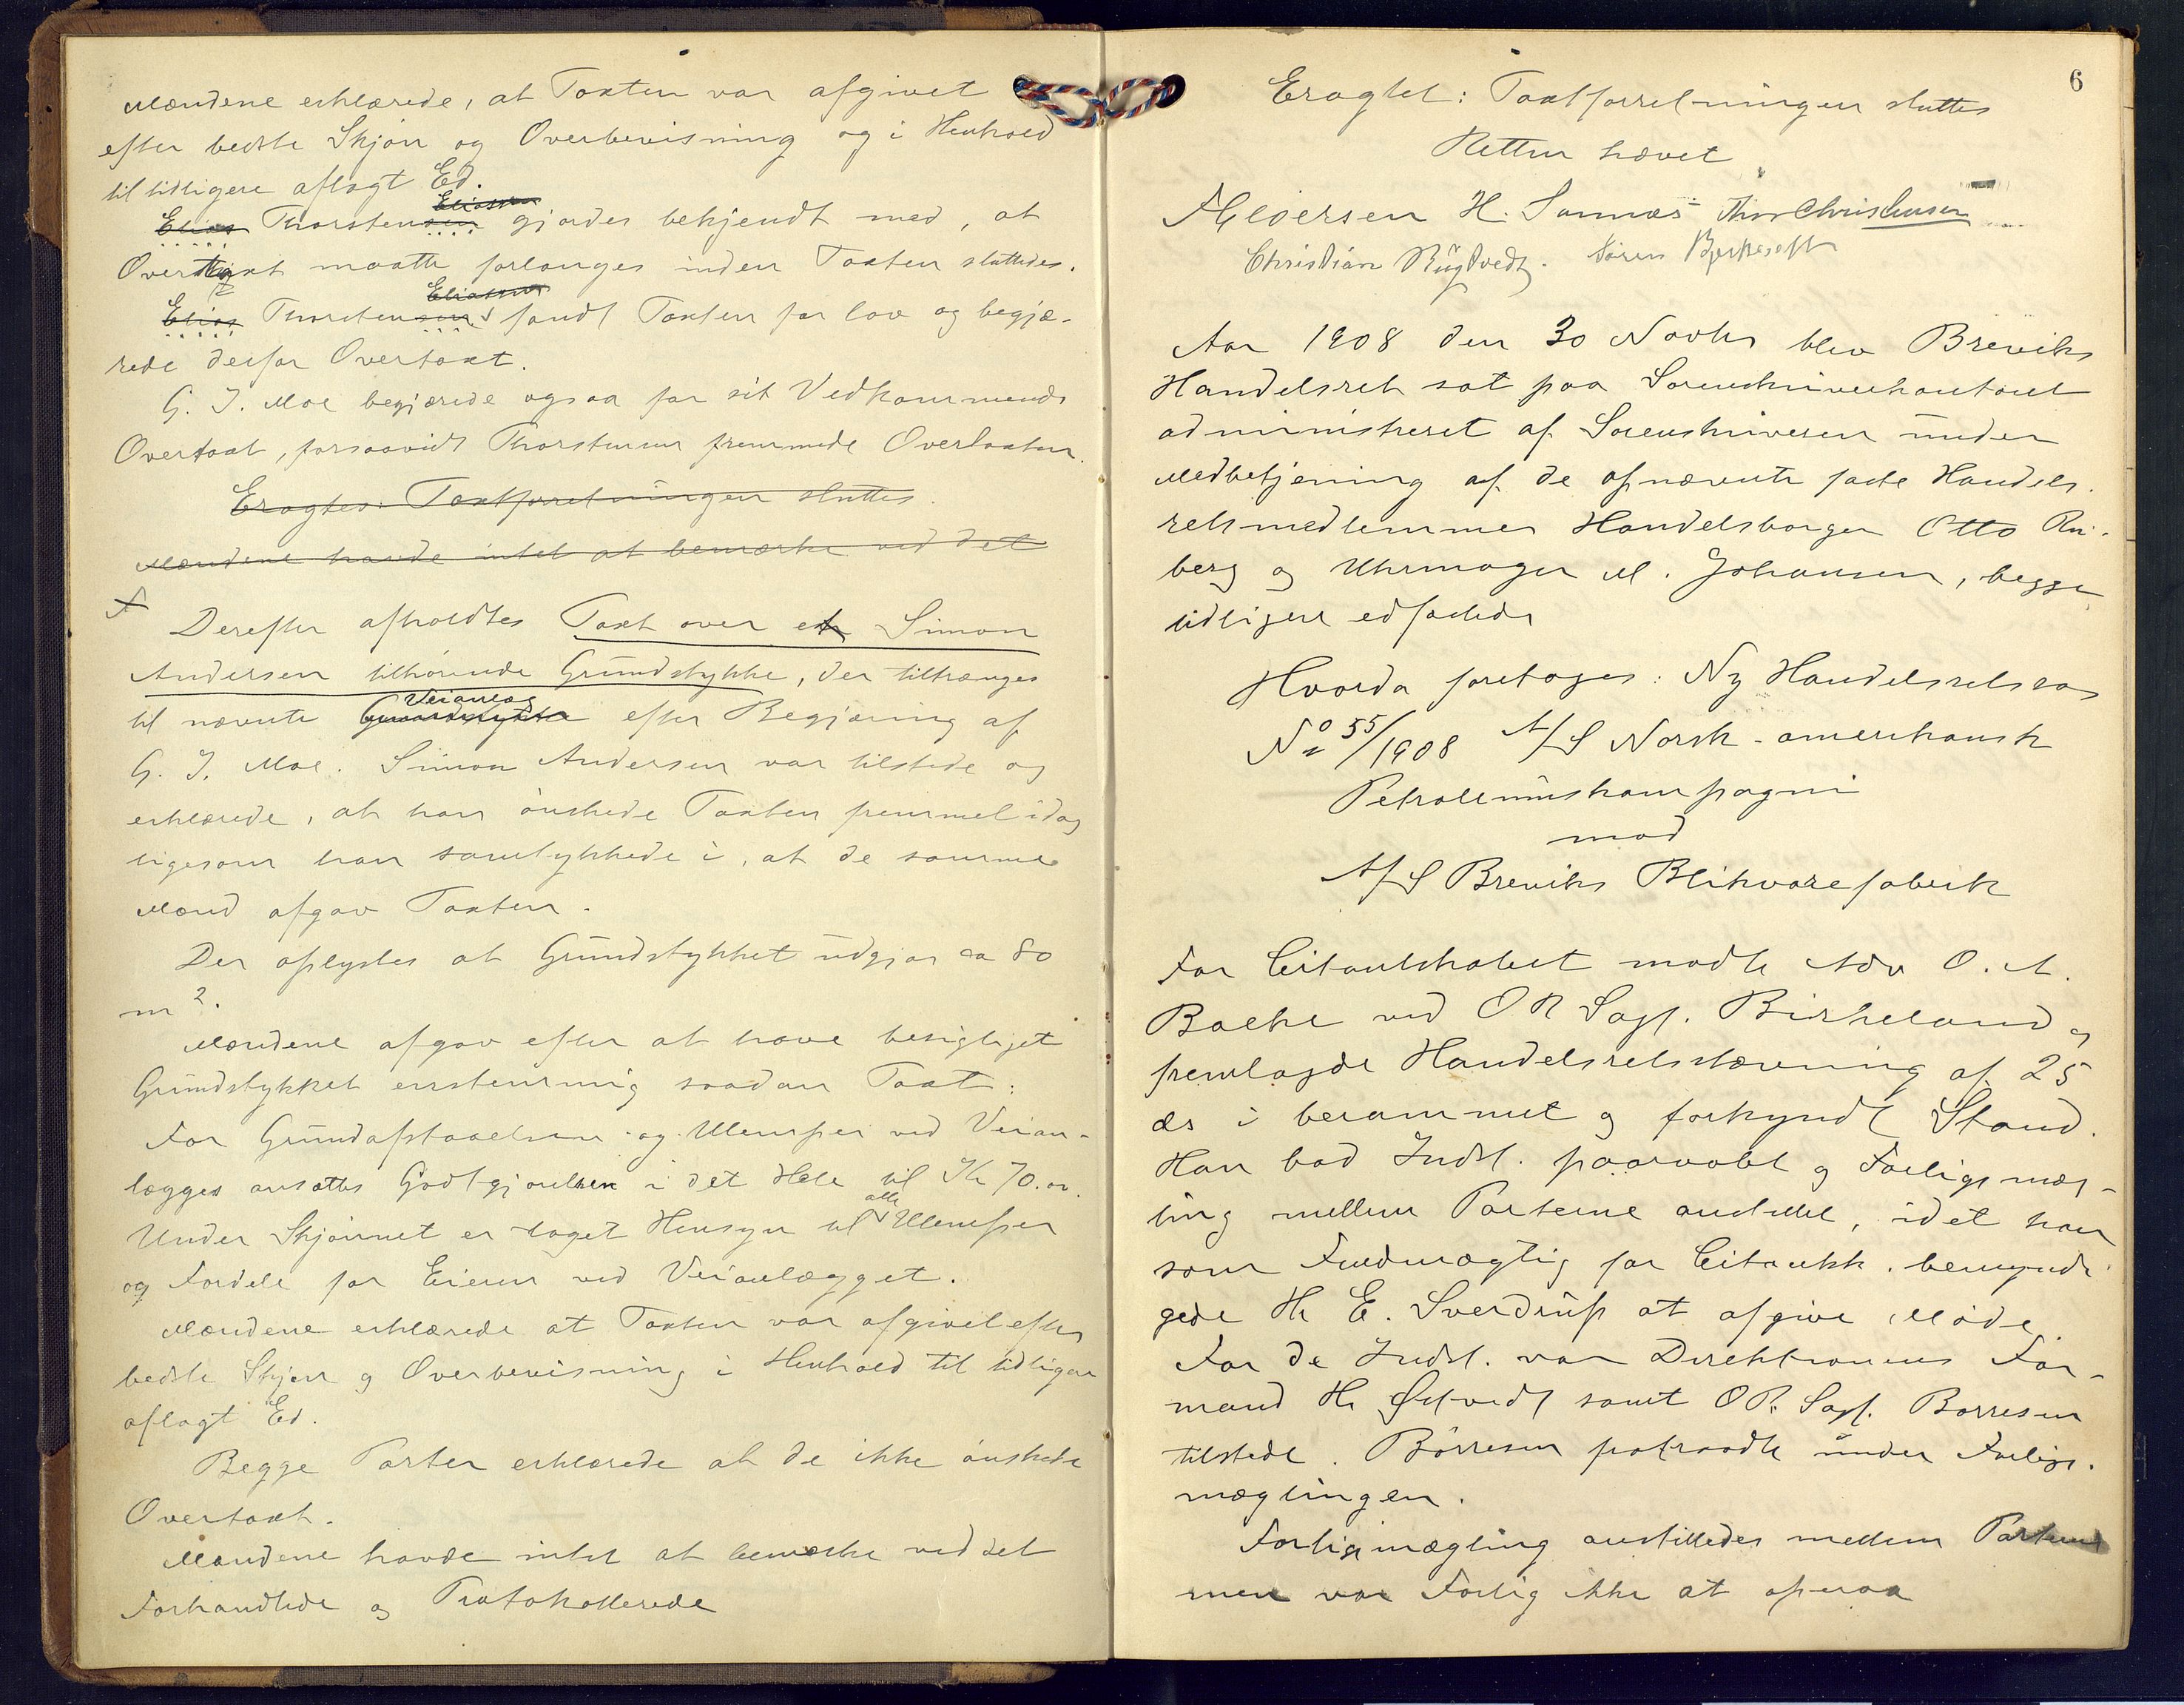 Mændene erklærede, at Taxten var afgivet
efter bedste Skjøn og Overbevisning og i Henhold
til tidligere aflagt Ed.
Elias Thorstensen Eliassen gjordes bekjendt med, at
Overtaxt maatte forlanges inden Taxten sluttedes.
Elias Thorstensen Eliassen fandt Taxten for lav og begjæ-
rede derfor Overtaxt.
G. J. Moe begjærede ogsaa for sit Vedkommende
Overtaxt, forsaavidt Thorstensen fremmede Overtaxten.
Eragtes: Taxtforretningen sluttes.
Mændene havde intet at bemærke ved det
Derefter afholdtes Taxt over et Simon
Andersen tilhørende Grundstykke, der tiltrænges
til nævnte Grundstykke Veianlæg efter Begjæring af
G. J. Moe. Simon Andersen var tilstede og
erklærede, at han ønskede Taxten fremmet idag
ligesom han samtykkede i, at de samme
Mænd afgav Taxten.
Der oplystes at Grundstykket udgjør ca 80
m².
Mændene afgav efter at have besigtiget
Grundstykket enstemmig saadan Taxt:
For Grundafstaaelsen og Ulemper ved Veian-
lægges ansattes Godtgjørelsen i det Hele til Kr 70.00.
Under Skjønnet er taget Hensyn til alle Ulemper
og Fordele for Eieren ved Veianlægget.
Mændene erklærede at Taxten var afgivet efter
bedste Skjøn og Overbevisning i Henhold til tidligere
aflagt Ed.
Begge Parter erklærede at de ikke ønskede
Overtaxt.
Mændene havde intet at bemærke ved det
Forhandlede og Protokollerede
6
Eragtet: Taxtforretningen sluttes
Retten hævet
H. Sannæs Thor Christensen
Christian Rugtvedt. Søren
Aar 1908 den 30 Novbr blev Breviks
Handelsret sat paa Sorenskriverkontoret
administreret af Sorenskriveren under
Medbetjening af de opnævnte faste Handels-
retsmedlemmer Handelsborger Otto
berg og Uhrmager M. Johansen, begge
tidligere edfæstede
Hvorda foretoges: Ny Handelsretssag
No 55/1908 A/S Norsk-amerikansk
Petroleumskompagni
mod
A/S Breviks Blikvarefabrik
For Citantskabet mødte Adv O. A.
Bache ved OR Sagf. Birkeland og
fremlagde Handelsretsstævning af 25
ds i berammet og forkyndt Stand.
Han bad Indst. paaraabt og Forligsmæg-
ling mellem Parterne anstillet, idet han
som Fuldmægtig for Citantsk. bemyndi-
gede Hr E. Sverdrup at afgive Møde.
For de Indst. var Direktionens For-
mand Hr Østvedt samt OR. Sagf. Børresen
tilstede. Børresen fratraadte under Forligs-
mæglingen.
Forligsmægling anstilledes mellem Parterne
men var Forlig ikke at opnaa